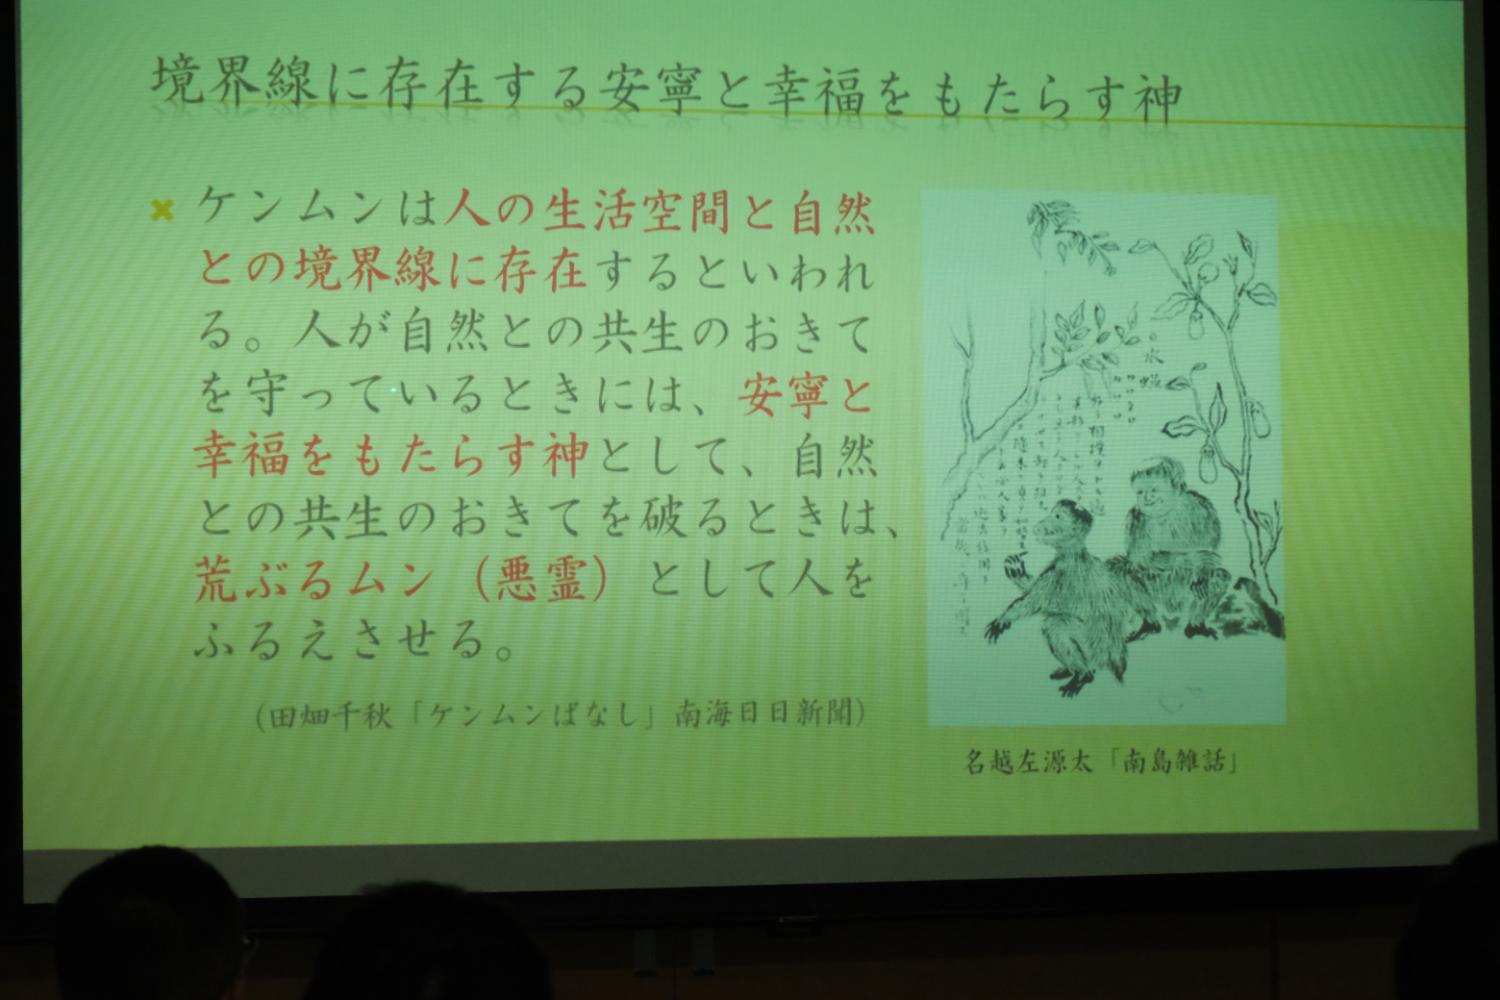 境界線に存在する安寧と幸福をもたらす神
ケンムンは人の生活空間と自然
との境界線に存在するといわれ
る。人が自然との共生のおきて
を守っているときには、安寧と
幸福をもたらす神として、自然
との共生のおきてを破るときは、
荒ぶるムン（悪霊）として人を
ふるえさせる。
（田畑千秋「ケンムンばなし」南海日日新聞）
水蝹
名越左源太「南島雑話」